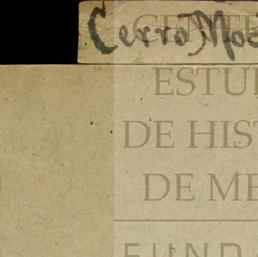 Cerro Moc
CENTE
ESTU
DE HIST
DE ME
FUND